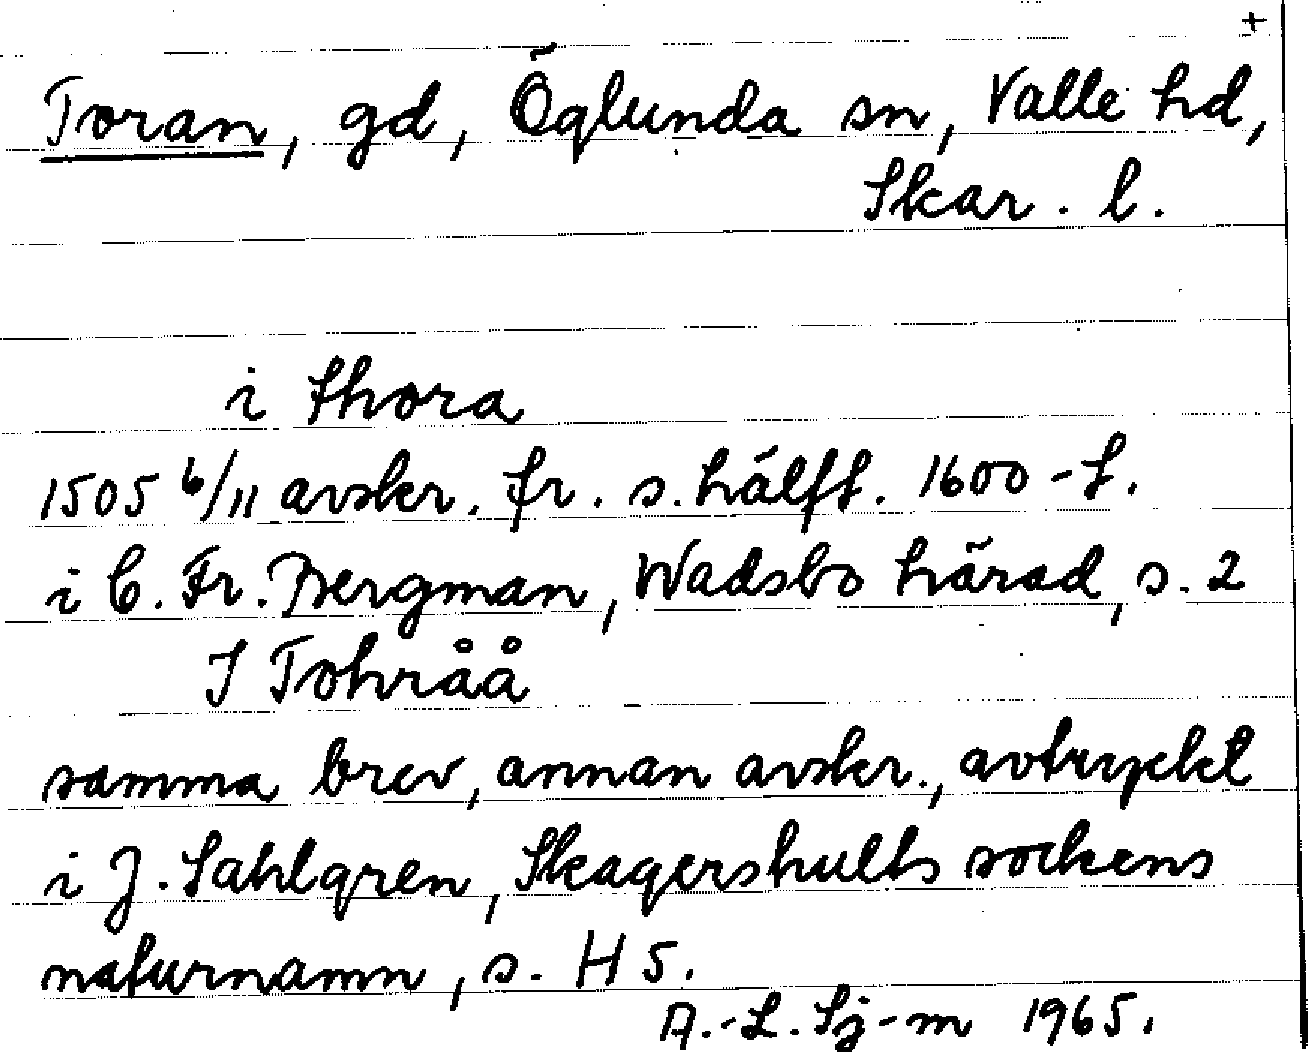 +
Toran, gd, Öglunda sn, Valle hd,
Skar. l.
i thora
1505 6/11 avskr. fr. s. hälft. 1600-t.
i C. Fr. Bergman, Wadsbo härad, s. 2
I Tohråå
samma brev, annan avskr., avtryckt
i J. Sahlgren, Skagershults sockens
naturnamn, s. H 5.
A.-L. Sj-m 1965.